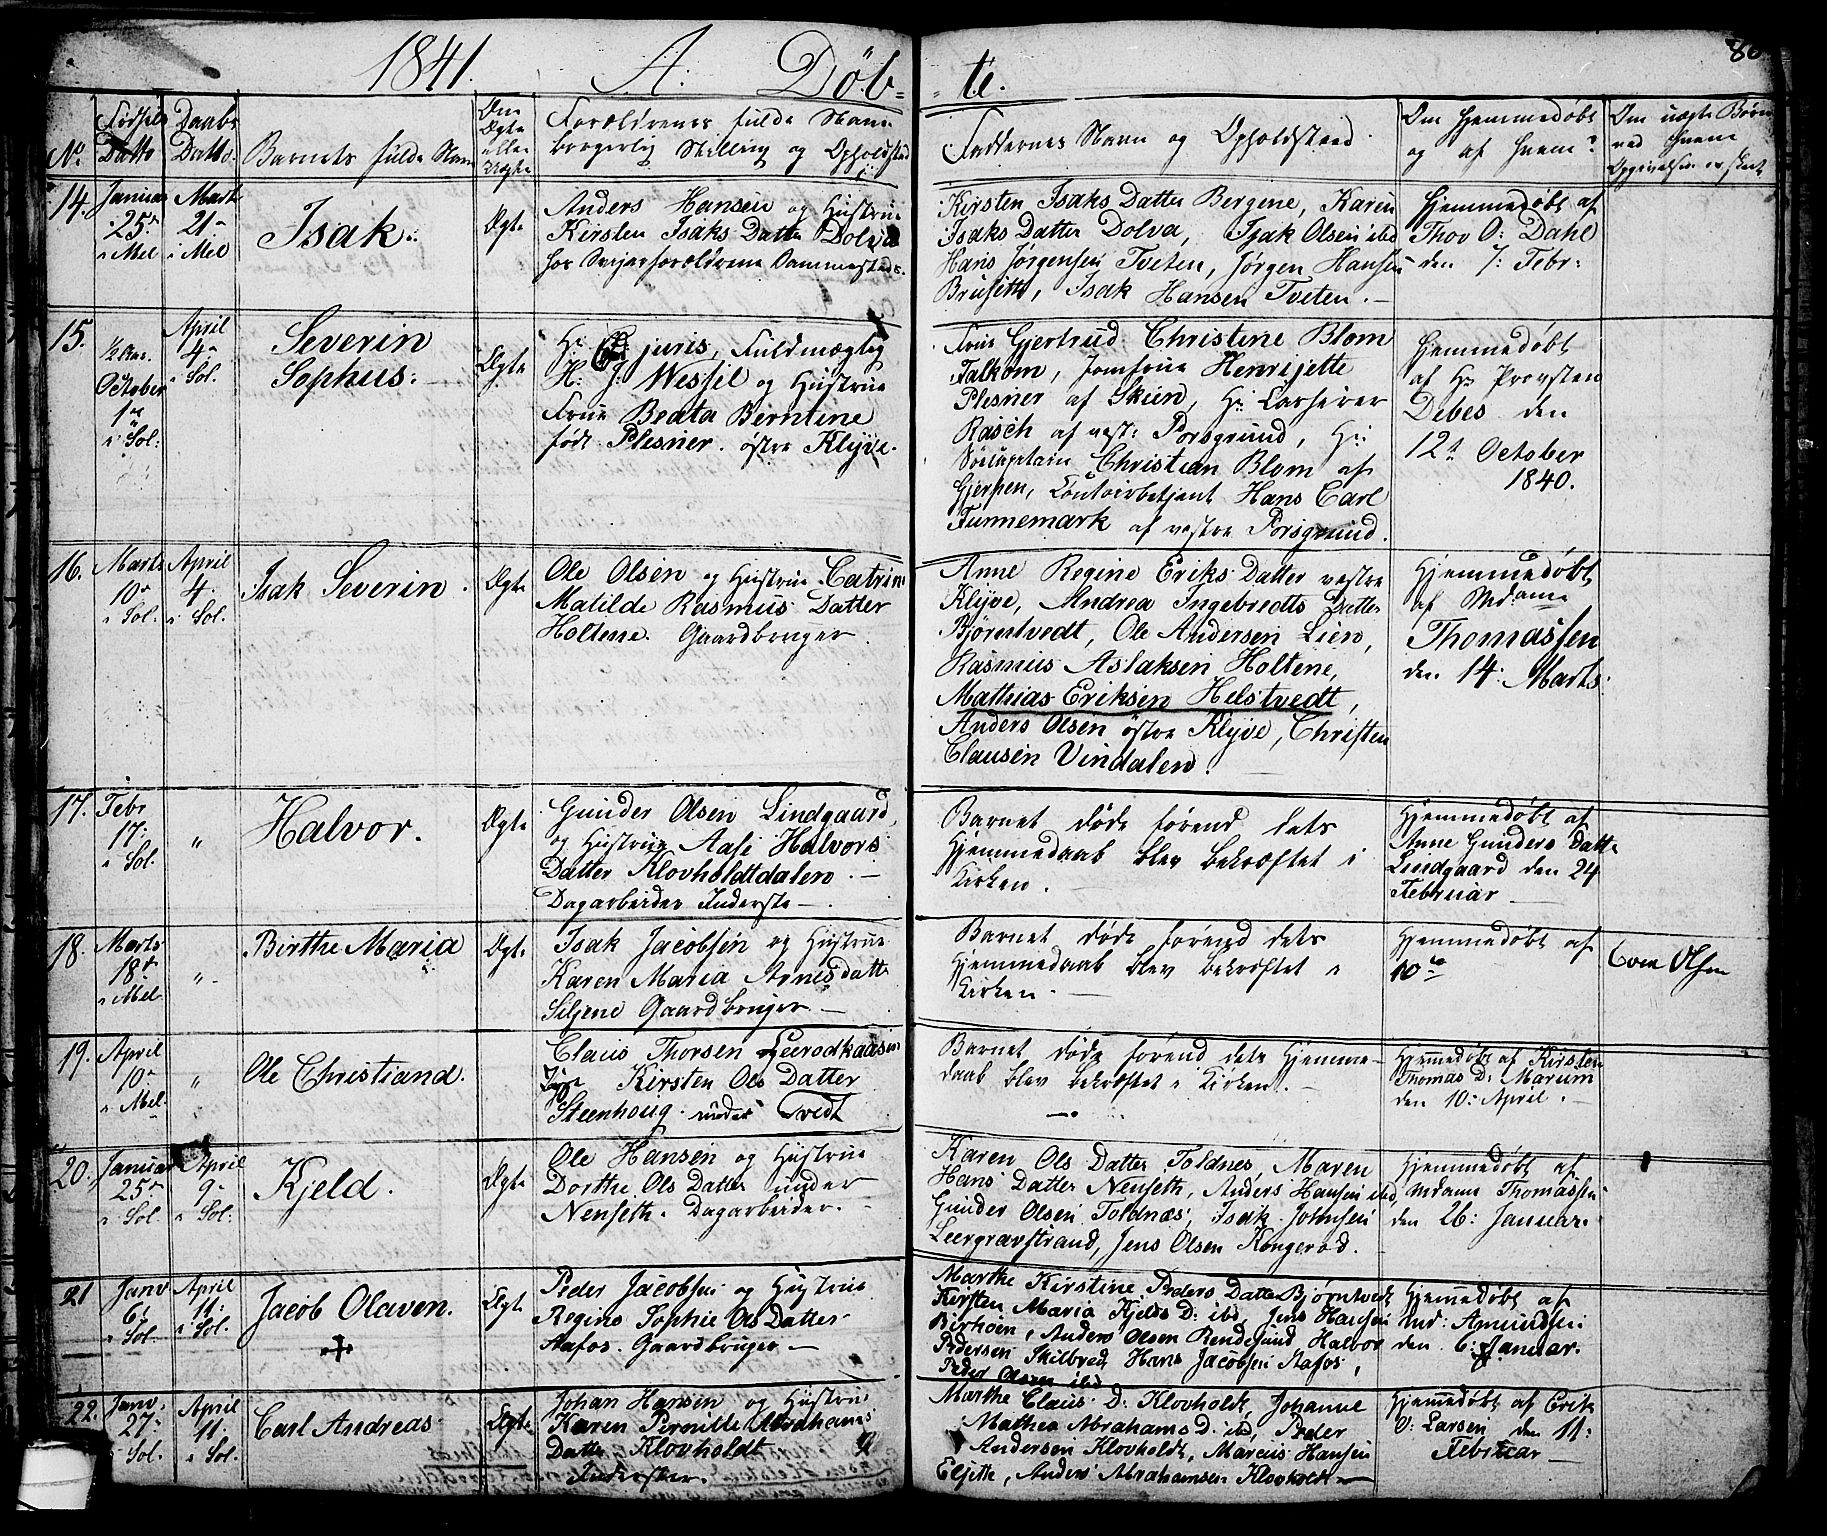 1841. A: Døb- -te. 86
No
Fødsels Datto
Daabs Datto.
Barnets fulde Navn
Om Ægte eller Uægte
Forældrenes fulde Navn borgerlig Stilling og Opholdsted
Faddernes Navn og Opholdssted.
Om Hjemmedøbt og af Hvem?
Om uægte Børn ved Hvem Opgivelsen er skeet
14. Januar 25de i Mel
Marts 21de i Mel
Isak.
Ægte
Anders Hansen og Hustrue
Kirsten Isaks Datter Dolva
hos Svigerforældrene
Kirsten Isaks Datter Bergene, Karen
Isaks Datter Dolva, Isak Olsen ibd
Hans Jørgensen Tveten, Jørgen Hansen
Brusett, Isak Hansen Tveten. -
Hjemmedøbt af
Thov O: Dahl
den 7: Febr:
15. October 1de i Sol.
April 4de i Sol.
Severin
Sophus.
Ægte
Hr juris, Fuldmægtig
H: J: Wessel og Hustrue
Frue Beata Berntine
født Plesner. østre Klyve.
Frue Gjertrud Christine Blom
Falkom, Jomfrue Henrijette
Plesner af Skien, Hr:
Rasch af vest: Porsgrund, Hr:
Søcaptain Christian Blom af
Gjerpen, Contoirbetjent Hans Carl
Funnemark af vestre Porsgrund.
Hjemmedøbt
af Hr Provsten
Debes den
12te October
1840.
16. Marts 10de i Sol.
April 4. i Sol.
Isak Severin.
Ægte
Ole Olsen og Hustrue Catrine
Matilde Rasmus Datter
Holtene. Gaardbruger.
Anne Regine Eriks Datter vestre
Klyve, Andrea Ingebredts Datter
Bjørntvedt, Ole Andersen Lien,
Rasmus Aslaksen Holtene,
Mathias Eriksen Helstvedt,
Anders Olsen østre Klyve, Christen
Clausen Vindalen.
Hjemmedøbt
af Mdame
Thomassen
den 14: Marts
17. Febr 17: i Sol.
"
Halvor.
Ægte
Gunder Olsen Lindgaard,
og Hustrue Aase Halvors
Datter Klovholdtdalen. -
Dagarbeider Inderste -.
Barnet døde førend dets
Hjemmedaab blev bekræftet i
Kirken.
Hjemmedøbt af
Anne Gunders Datt
Lindgaard den 24
Februar -
18. Marts 18de i Mel
"
Birthe Maria
Ægte
Isak Jacobsen og Hustrue
Karen Maria Arnes datt
Siljene Gaardbruger -
Barnet døde førend dets
Hjemmedaab blev bekræftet i
Kirken. -
Hjemmedøbt af
Even Olsen
19. April 10de i Mel.
"
Ole Christiand.
Claus Thorsen
Kirsten Ols Datter
Steenhoug. under Tvedt
Barnet døde førend dets Hjemme-
daab blev bekræftet i Kirken. -
Hjemmedøbt af Kirsten
Thomas D: Marum
den 10: April. -
20. Januar 25de i Sol
April 9de i Sol:
Kjeld.
Ægte
Ole Hansen og Hustrue
Dorthe Ols Datter under
Nenseth. Dagarbeider. -
Karen Ols Datter Toldnes, Maren
Hans Datter Nenseth, Anders Hansen ibd,
Gunder Olsen Toldnæs, Isak Johnsen
Leergravstrand, Jens Olsen Kongerød.
Hjemmedøbt af
Mdame Thomassen
den 26: Januar.
21 Janv 6: i Sol.
April 11: i Sol.
Jacob Olaven.
Ægte
Peder Jacobsen og Hustrue
Regine Sophie Ols Datter
Aafos. Gaardbruger -
Marthe Kirstine Peders Datter Bjørntvedt
Kirsten Maria Kjelds D: ibd, Jens Hansen
Birhoen, Anders Olsen Rendesund Halvor
Pedersen Skilbred Hans Jacobsen Aafos,
Peder Olsen ibd
Hjemmedøbt af
Md: Amundsen
den 6: Januar.
22. Janv. 27: i Sol.
April 11: i Sol.
Carl Andreas
Ægte
Johan Hansen og Hustrue
Karen Pernille Abrahams
Datter Klovholdt
Inderster.
Marthe Claus D: Klovholdt Johanne
Mathea Abrahams D: ibd, Peder
Andersen Klovholdt, Marcus Hansen
Eljette, Anders Abrahamsen Klovholdt -
Hjemmedøbt af Erik
O: Larsen den 11:
Februar -